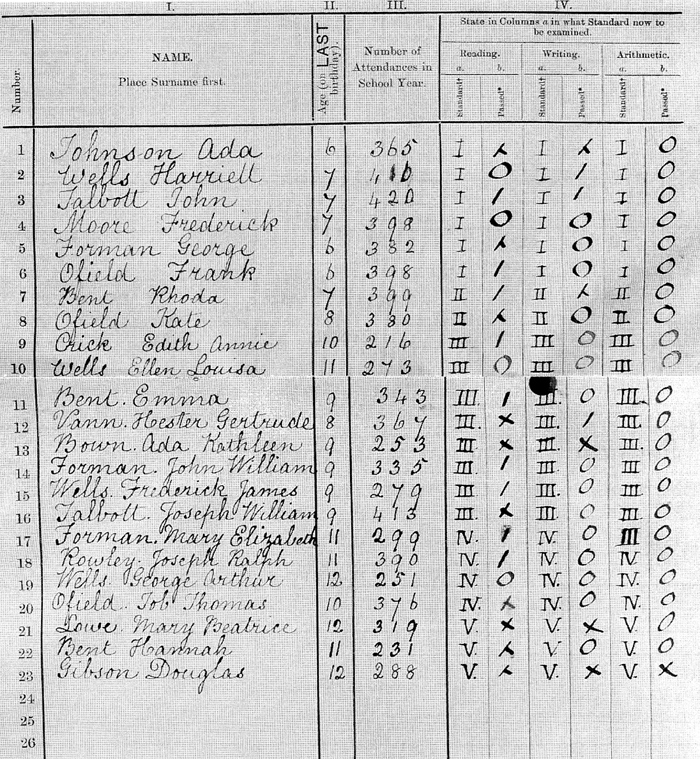 I. II. III. IV.
Number. NAME. Place Surname first. Age (on LAST birthday). Number of Attendances in School Year. State in Columns a in what Standard now to be examined.
Reading. Writing. Arithmetic.
a. b. a. b. a. b.
Standard† Passed* Standard† Passed* Standard† Passed*
1 Johnson Ada 6 365 I x I x I O
2 Wells Harriett 7 410 I O I / I O
3 Talbott John 7 420 I / I / I O
4 Moore Frederick 7 398 I O I O I O
5 Forman George 6 382 I x I O I O
6 Ofield Frank 6 398 I / I O I O
7 Bent Rhoda 7 399 II / II x II O
8 Ofield Kate 8 380 II x II O II O
9 Crick Edith Annie 10 216 III / III O III O
10 Wells Ellen Louisa 11 273 III O III O III O
11 Bent. Emma 9 343 III. / III. O III. O
12 Vann. Hester Gertrude 8 367 III. x III. / III. O
13 Bown. Ada Kathleen 9 253 III. x III. x III. O
14 Forman. John William 9 335 III. / III. O III. O
15 Wells. Frederick James 9 279 III. / III. O III. O
16 Talbott. Joseph William 9 413 III. x III. O III. O
17 Forman. Mary Elizabeth 11 299 IV. / IV. O III O
18 Rowley. Joseph Ralph 11 390 IV. / IV. O IV. O
19 Wells. George Arthur 12 251 IV. O IV. O IV. O
20 Ofield. Job Thomas 10 376 IV. x IV. O IV. O
21 Lowe. Mary Beatrice 12 319 V. x V. x V. O
22 Bent Hannah 11 231 V. x V O V. O
23 Gibson Douglas 12 288 V. x V. x V. x
24
25
26